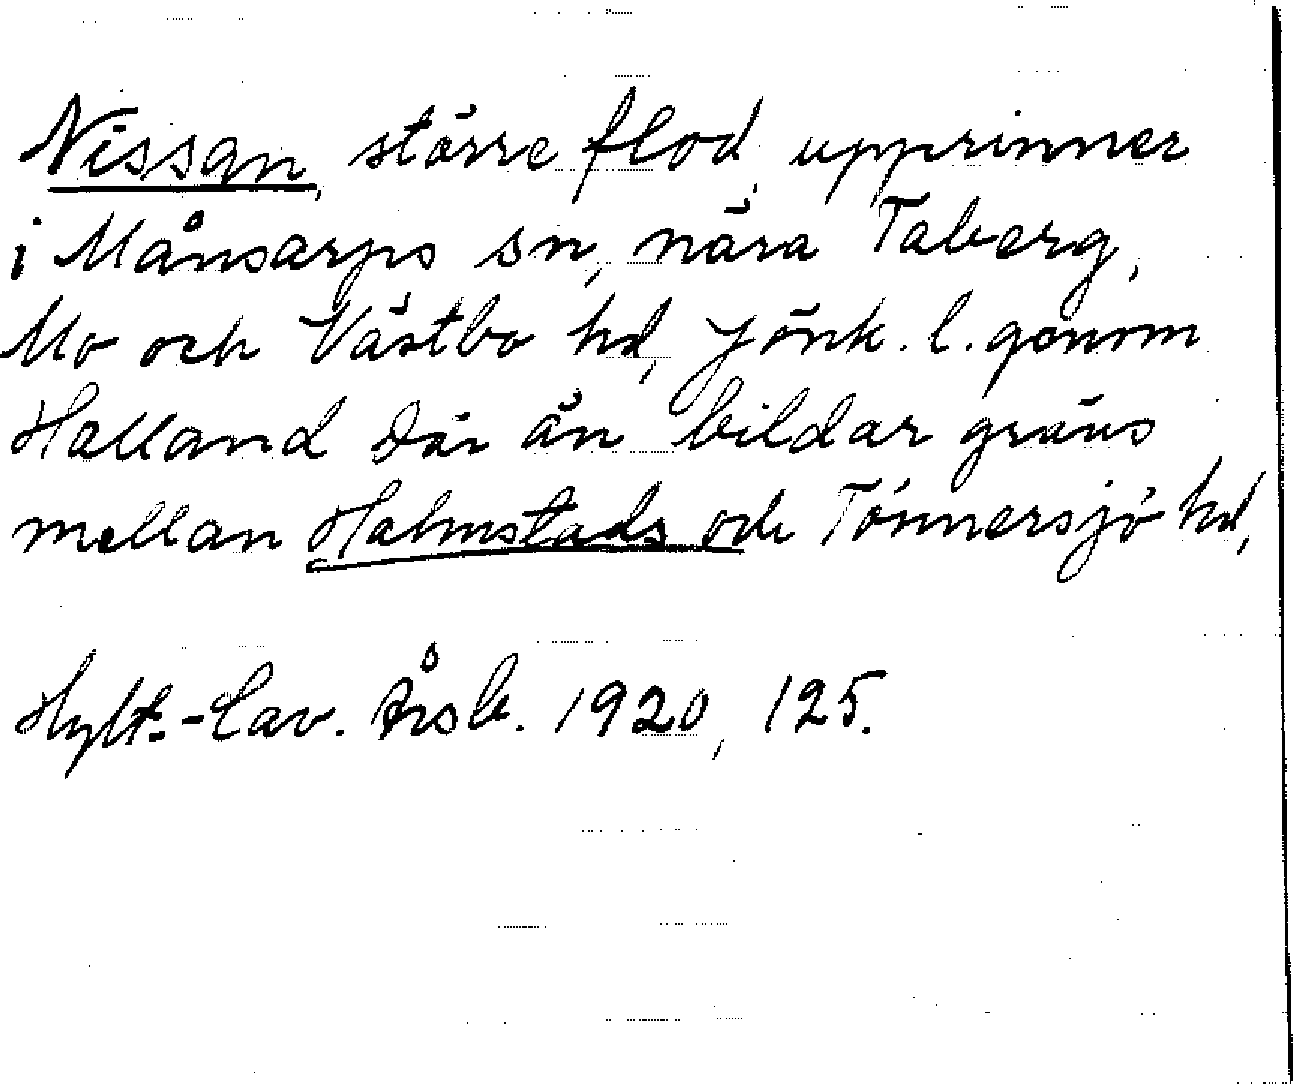 Nissan, större flod, upprinner
i Månsarps sn, nära Taberg,
Mo och Västbo hd, Jönk. l. genom
Halland där ån bildar gräns
mellan Halmstads och Tönnersjö hd,
Hylt.-Cav. Årsb. 1920, 125.